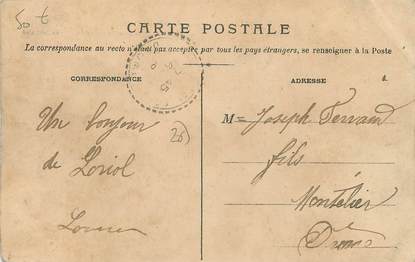 50 t
CARTE POSTALE
La correspondance au recto n'étant pas acceptée par tous les pays étrangers, se renseigner à la Poste
CORRESPONDANCE
ADRESSE
Un bonjour
de Loriol
(26)
M= Joseph
fils
Montélier
Drôme